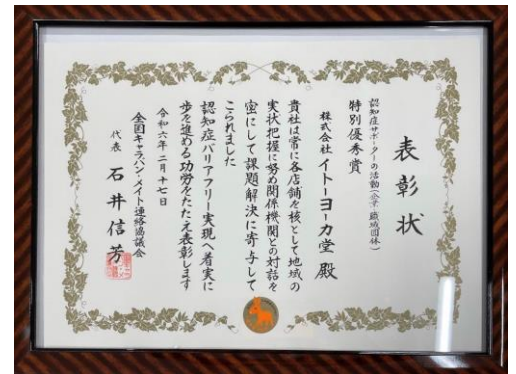 表彰状
認知症サポーターの活動(企業・職域団体)
特別優秀賞
株式会社イトーヨーカ堂 殿
貴社は常に各店舗を核として地域の
実状把握に努め関係機関との対話を
密にして課題解決に寄与して
こられました
認知症バリアフリー実現へ着実に
歩を進める功労をたたえ表彰します
令和六年二月十七日
全国キャラバン・メイト連絡協議会
代表 石井信芳